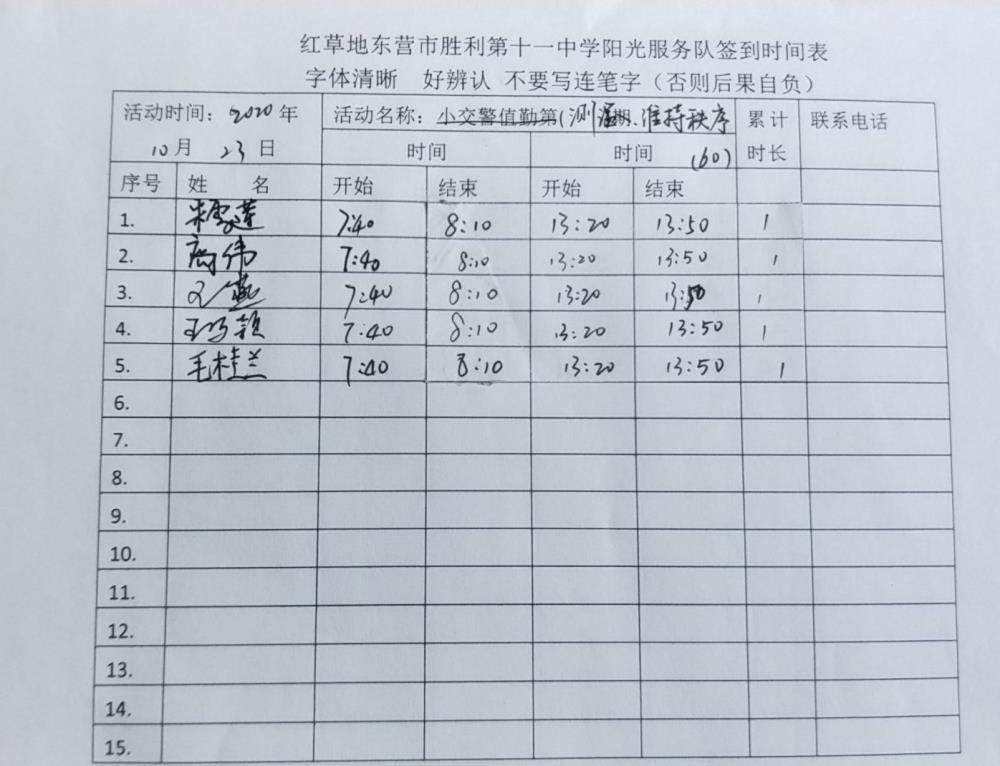 红草地东营市胜利第十一中学阳光服务队签到时间表
字体清晰 好辨认 不要写连笔字（否则后果自负）
活动时间：2020年 活动名称：小交警值勤第(测温期、维持秩序 累计 联系电话
10月 23日 时间 时间 (60) 时长
序号 姓 名 开始 结束 开始 结束
1. 朱雪莲 7:40 8:10 13:20 13:50 1
2. 高伟 7:40 8:10 13:20 13:50 1
3. 7:40 8:10 13:20 13:50 1
4. 7:40 8:10 13:20 13:50 1
5. 毛桂兰 7:40 8:10 13:20 13:50 1
6.
7.
8.
9.
10.
11.
12.
13.
14.
15.